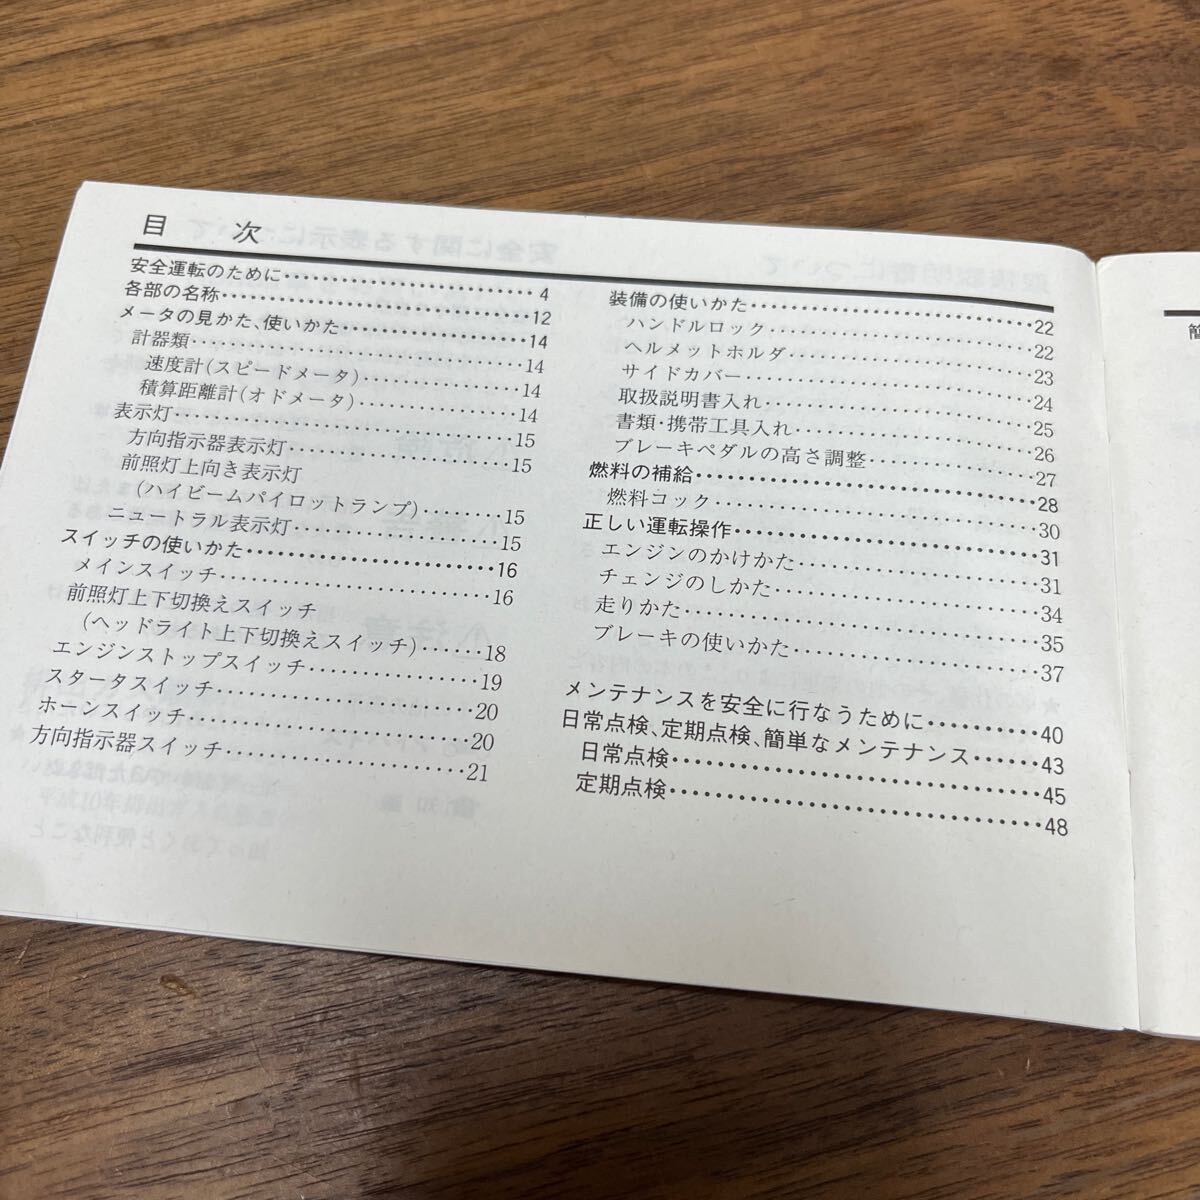 目 次
安全運転のために 4
各部の名称 12
メータの見かた、使いかた 14
計器類 14
速度計(スピードメータ) 14
積算距離計(オドメータ) 14
表示灯 15
方向指示器表示灯 15
前照灯上向き表示灯
(ハイビームパイロットランプ) 15
ニュートラル表示灯 15
スイッチの使いかた 16
メインスイッチ 16
前照灯上下切換えスイッチ
(ヘッドライト上下切換えスイッチ) 18
エンジンストップスイッチ 19
スタータスイッチ 20
ホーンスイッチ 20
方向指示器スイッチ 21
装備の使いかた 22
ハンドルロック 22
ヘルメットホルダ 23
サイドカバー 24
取扱説明書入れ 25
書類・携帯工具入れ 26
ブレーキペダルの高さ調整 27
燃料の補給 28
燃料コック 30
正しい運転操作 31
エンジンのかけかた 31
チェンジのしかた 34
走りかた 35
ブレーキの使いかた 37
メンテナンスを安全に行なうために 40
日常点検、定期点検、簡単なメンテナンス 43
日常点検 45
定期点検 48